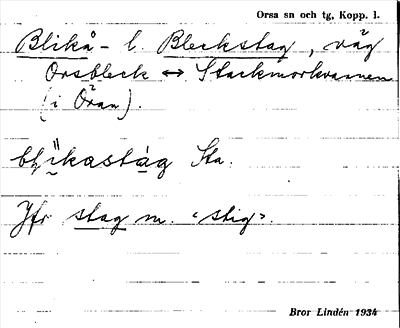 Orsa sn och tg, Kopp. l.
Blikå- l. Bleckstag, väg
Orsbleck ↔ Stackmorkvarnen
(i Öran).
Sta.
Jfr stag m. "stig".
Bror Lindén 1934